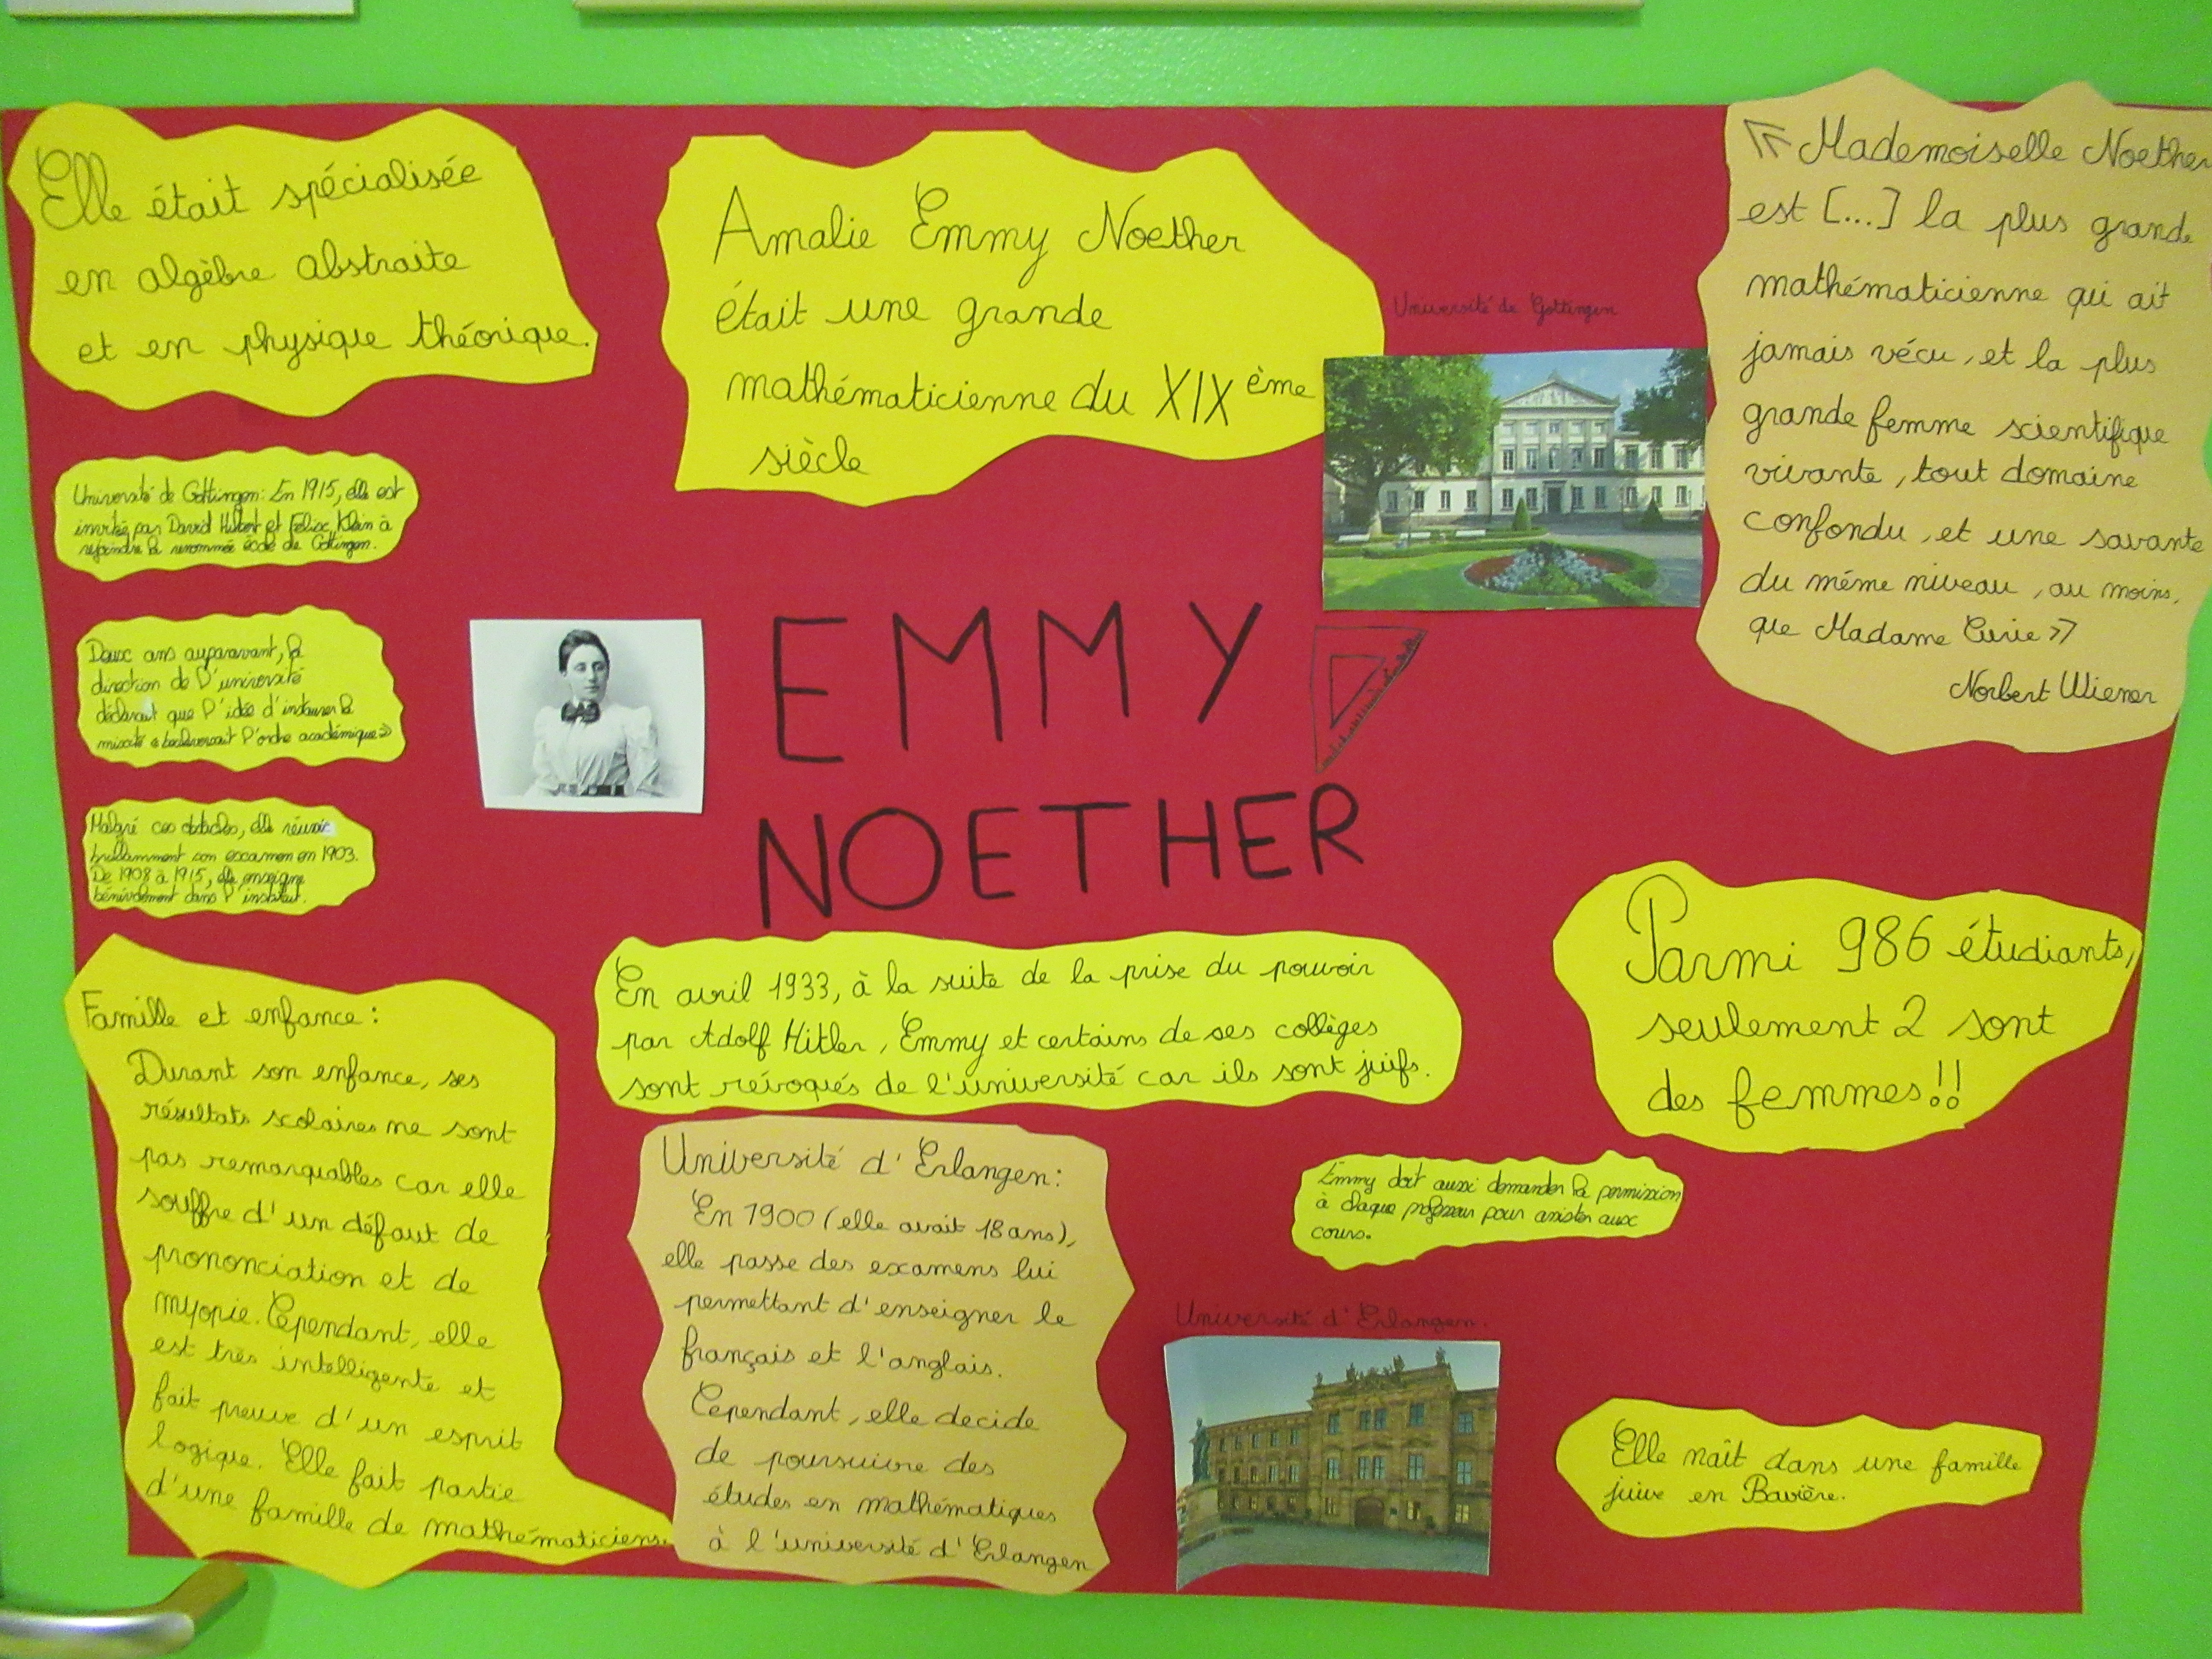 Elle était spécialisée
en algèbre abstraite
et en physique théorique.
Amalie Emmy Noether
était une grande
mathématicienne du XIX ème
siècle
Université de Göttingen
« Mademoiselle Noether
est [...] la plus grande
mathématicienne qui ait
jamais vécu, et la plus
grande femme scientifique
vivante, tout domaine
confondu, et une savante
du même niveau, au moins,
que Madame Curie »
Norbert Wiener
Université de Göttingen: En 1915, elle est
invitée par David Hilbert et Felix Klein à
rejoindre la renommée école de Göttingen.
Deux ans auparavant, la
direction de l'université
déclarait que l'idée d'instaurer la
mixité « bouleverserait l'ordre académique »
Malgré ces obstacles, elle réussit
brillamment son examen en 1903.
De 1908 à 1915, elle enseigne
bénévolement dans l'institut.
EMMY
NOETHER
Famille et enfance :
Durant son enfance, ses
résultats scolaires ne sont
pas remarquables car elle
souffre d'un défaut de
prononciation et de
myopie. Cependant, elle
est très intelligente et
fait preuve d'un esprit
logique. Elle fait partie
d'une famille de mathématiciens.
En avril 1933, à la suite de la prise du pouvoir
par Adolf Hitler, Emmy et certains de ses collèges
sont révoqués de l'université car ils sont juifs.
Université d'Erlangen:
En 1900 (elle avait 18 ans),
elle passe des examens lui
permettant d'enseigner le
français et l'anglais.
Cependant, elle decide
de poursuivre des
études en mathématiques
à l'université d'Erlangen
Parmi 986 étudiants,
seulement 2 sont
des femmes!!
Emmy doit aussi demander la permission
à chaque professeur pour assister aux
cours.
Université d'Erlangen.
Elle naît dans une famille
juive en Bavière.